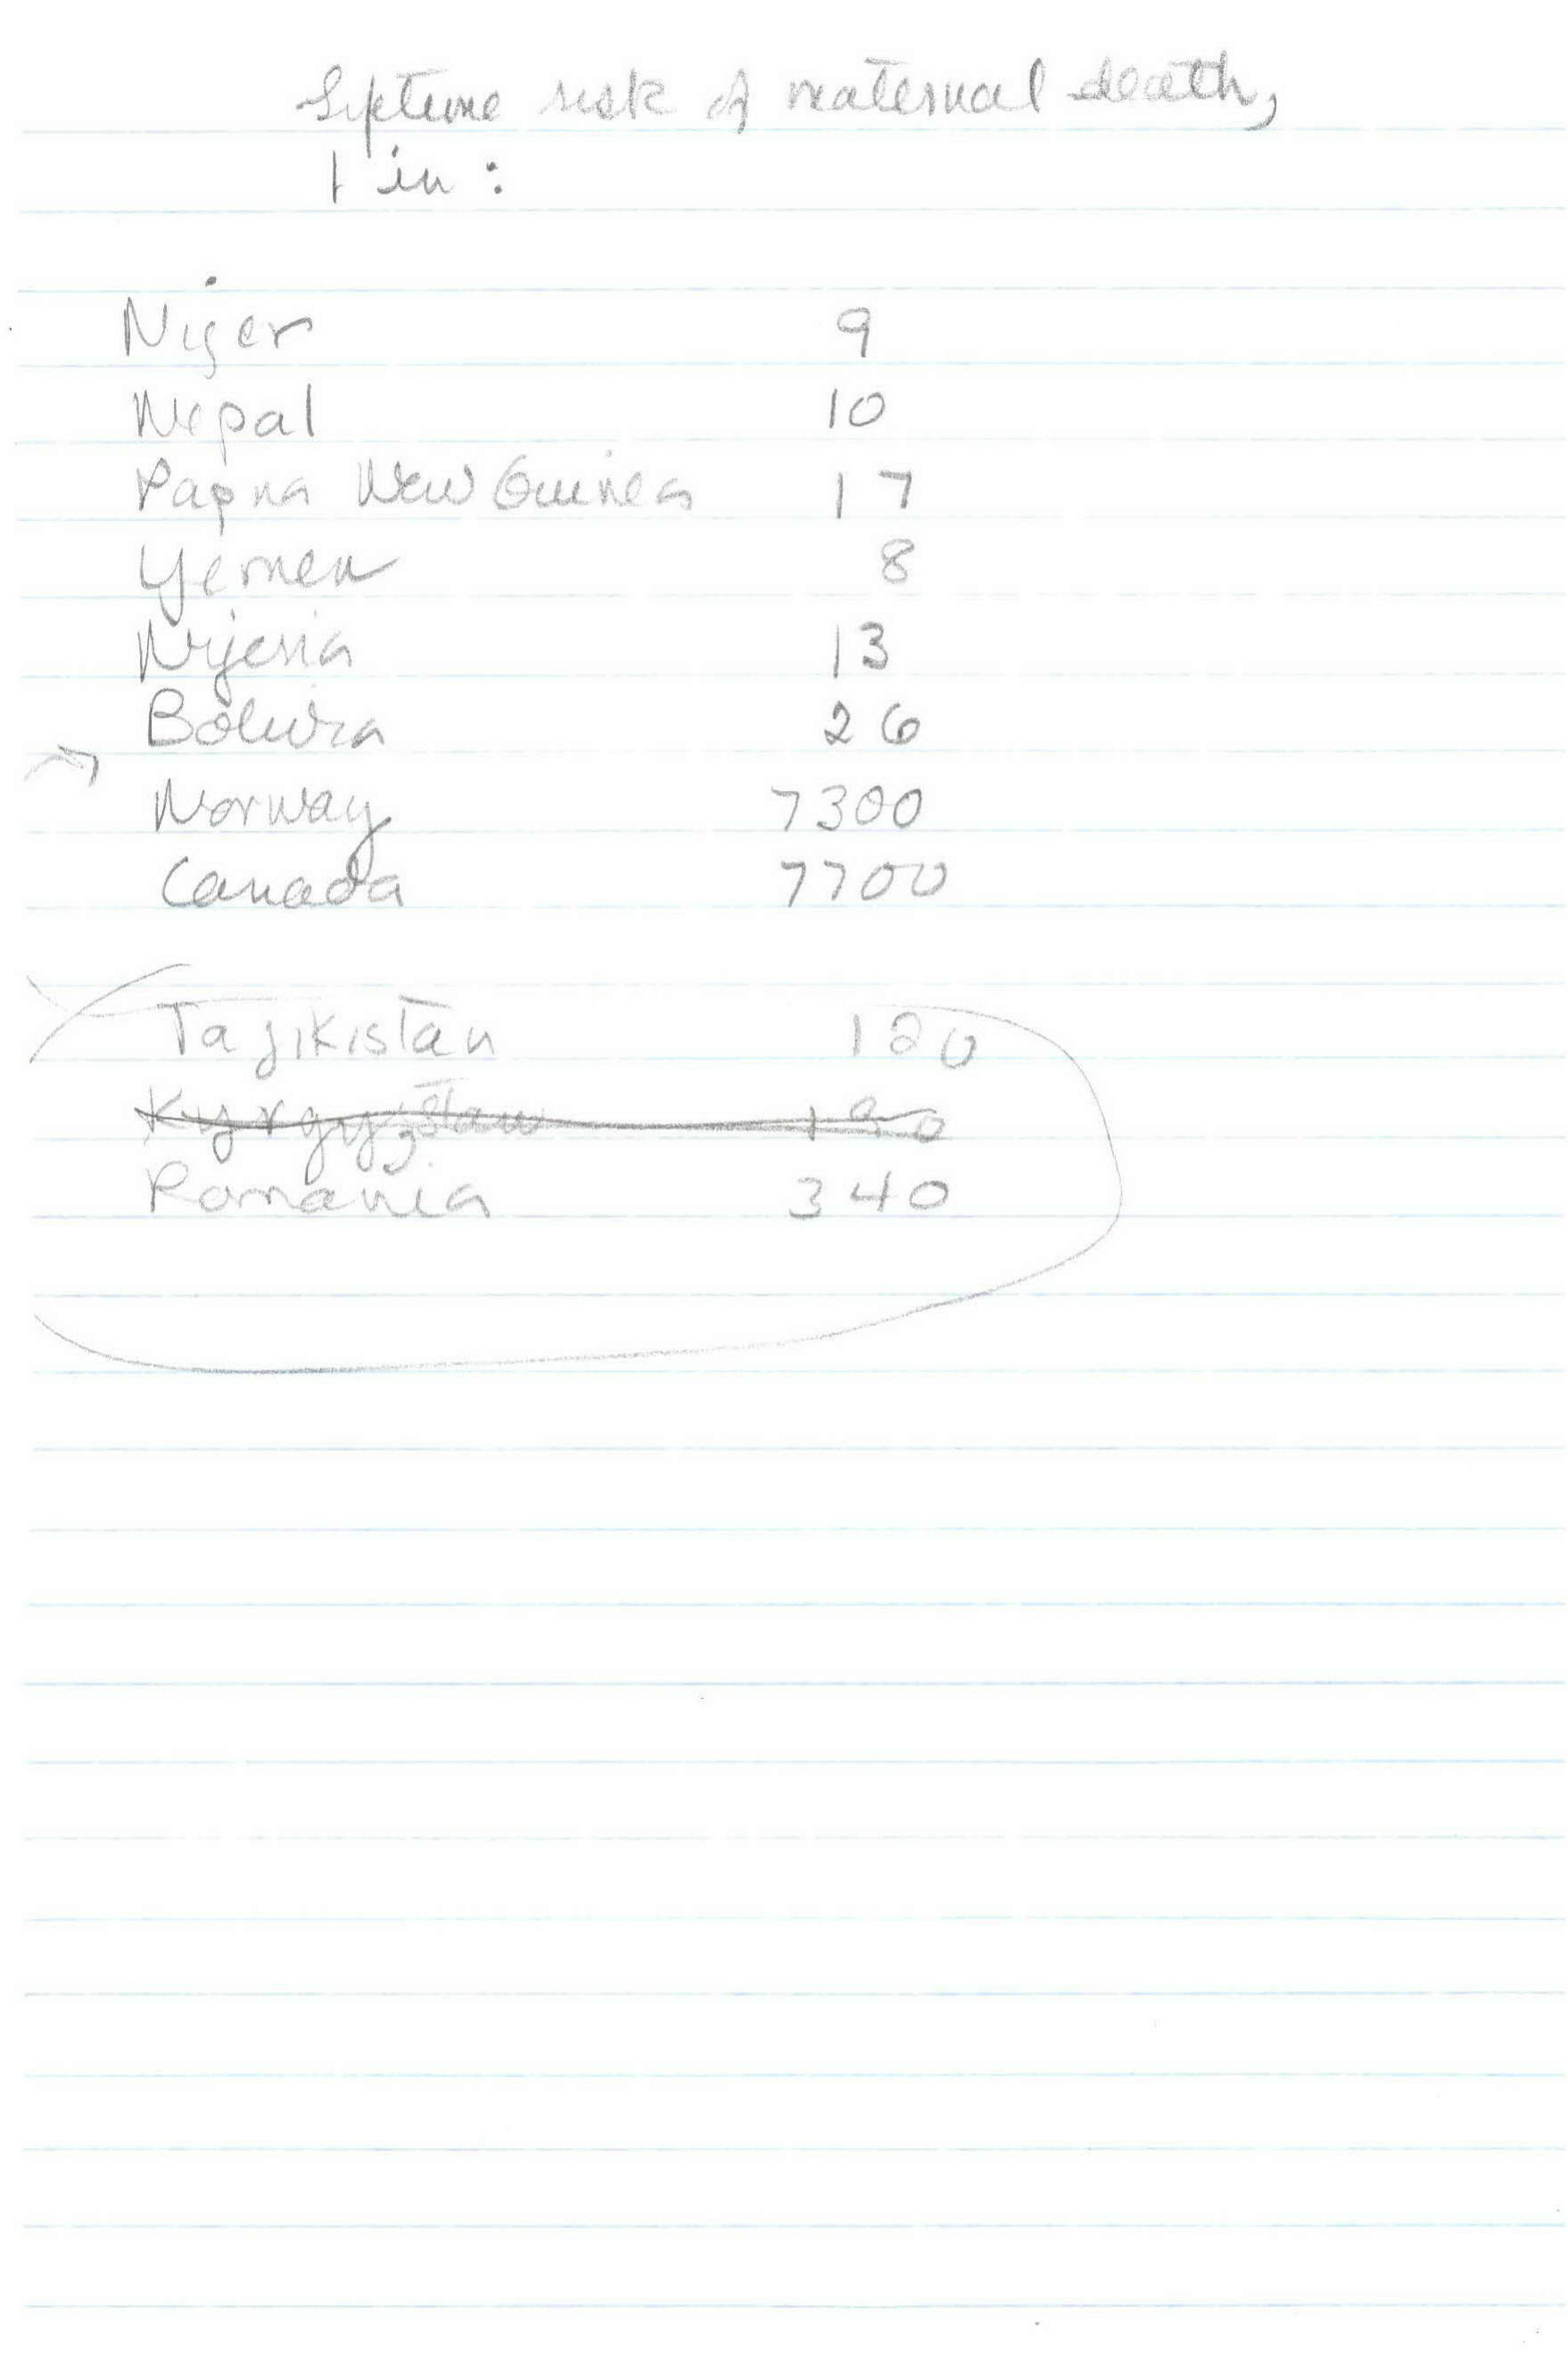 Lifetime risk of maternal death,
1 in :
Niger 9
Nepal 10
Papua New Guinea 17
Yemen 8
Nigeria 13
Bolivia 26
Norway 7300
Canada 7700
Tajikistan 120
Kyrgyzstan 190
Romania 340